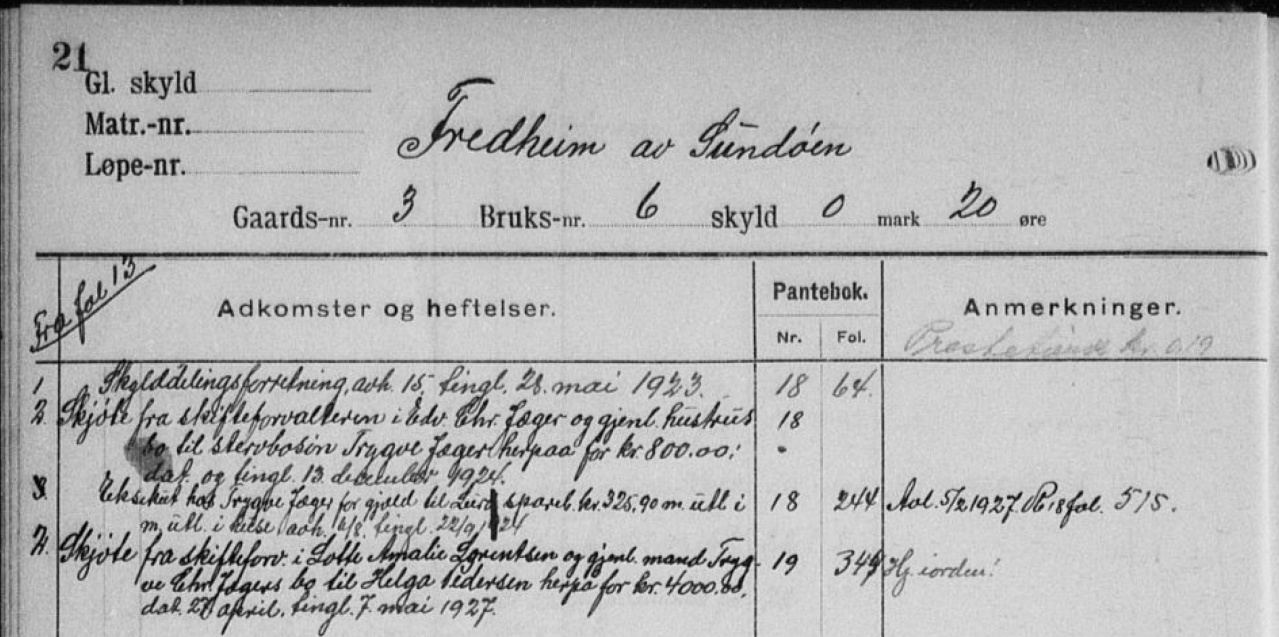 21
Gl. skyld
Matr.-nr.
Løpe-nr.
Fredheim av Sundøen
Gaards-nr. 3 Bruks-nr. 6 skyld 0 mark 20 øre
Fra fol 13
Adkomster og heftelser.
Pantebok.
Nr. Fol.
Anmerkninger.
kr. 0.19
1 Skylddelingsforretning, avh. 15, tingl. 28. mai 1923. 18 64.
2. Skjøte fra skifteforvalteren i Edv. Chr. Jæger og gjenl. hustrus 18
bo til stervbosøn Trygve Jæger herpaa for kr. 800.00:
dat. og tingl. 13. december 1924.
3. Eksekut. hos Trygve Jæger for gjæld til spareb. kr. 325,90 m. utl i 18 244 Avl. 5/2 1927. Pb 18 fol. 515.
m. utl. i avh. tingl. 22/9 1924
4. Skjøte fra skifteforv. i Lotte Amalie Lorentsen og gjenl. mand Tryg- 19 344 Hj. iorden!
ve Chr. Jægers bo til Helga Pedersen herpå for kr. 4000.00,
dat. april, tingl. 7. mai 1927.